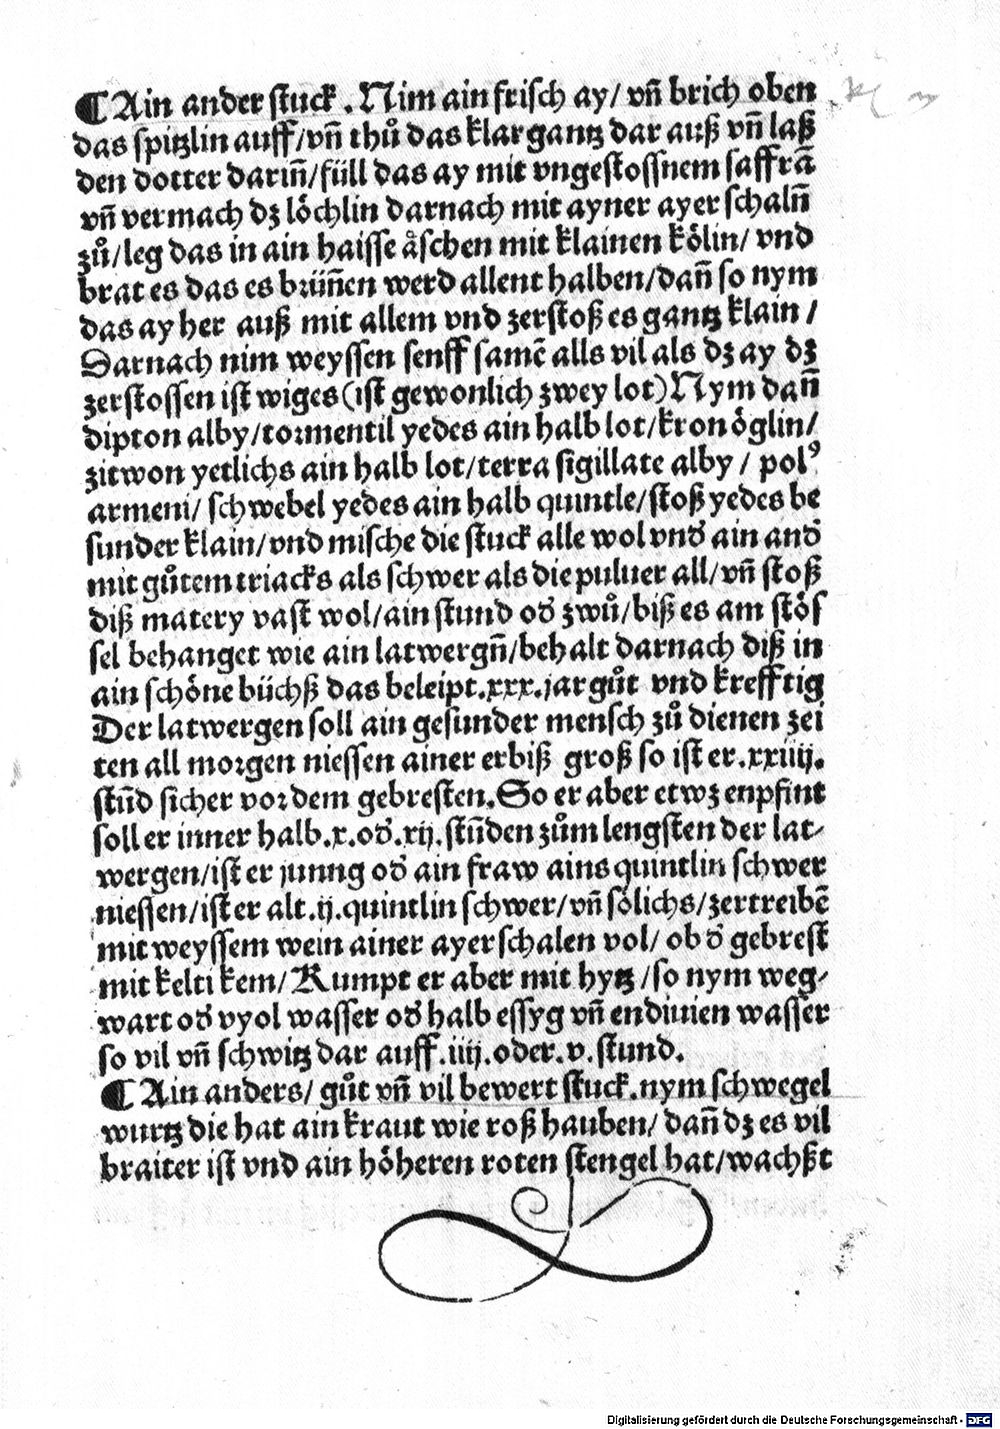 ¶ Ain ander stuck . Nim ain frisch ay/ vñ brich oben
das spitzlin auff/vñ thů das klar gantz dar auß vñ laß
den dotter dariñ/füll das ay mit vngestossnem saffrã
vñ vermach dz löchlin darnach mit ayner ayer schalñ
zů/leg das in ain haisse åschen mit klainen kölin/ vnd
brat es das es brüñen werd allent halben/dañ so nym
das ay her auß mit allem vnd zerstoß es gantz klain /
Darnach nim weyssen senff samẽ alls vil als dz ay dz
zerstossen ist wiges (ist gewonlich zwey lot) Nym dañ
dipton alby/tormentil yedes ain halb lot/kron öglin/
zitwon yetlichs ain halb lot/terra sigillate alby / polꝰ
armeni/ schwebel yedes ain halb quintle/stoß yedes be
sunder klain/vnd mische die stuck alle wol vnd̕ ain and̕
mit gůtem triacks als schwer als die puluer all/vñ stoß
diß matery vast wol/ain stund od̕ zwů/biß es am stös
sel behanget wie ain latwergñ/behalt darnach diß in
ain schöne büchß das beleipt.xxx.jar gůt vnd krefftig
Der latwergen soll ain gesunder mensch zů dienen zei
ten all morgen niessen ainer erbiß groß so ist er.xxiiij.
stũd sicher vor dem gebresten.So er aber etwz enpfint
soll er inner halb.x.od̕.xij.stũden zům lengsten der lat⸗
wergen/ist er junng od̕ ain fraw ains quintlin schwer
niessen/ist er alt.ij.quintlin schwer/vñ sölichs/zertreibẽ
mit weyssem wein ainer ayer schalen vol/ ob d̕ gebrest
mit kelti kem/ Kumpt er aber mit hytz /so nym weg⸗
wart od̕ vyol wasser od̕ halb essyg vñ endiuien wasser
so vil vñ schwitz dar auff.iiij.oder.v.stund.
¶ Ain anders/ gůt vñ vil bewert stuck.nym schwegel
wurtz die hat ain kraut wie roß hauben/ dañ dz es vil
braiter ist vnd ain höheren roten stengel hat/wachßt
Digitalisierung gefördert durch die Deutsche Forschungsgemeinschaft - DFG